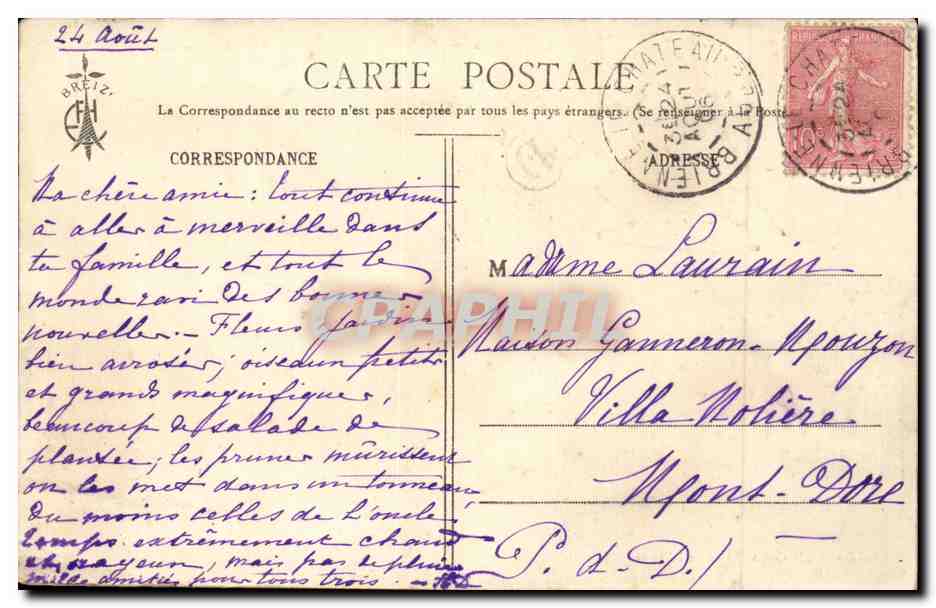 24 Août
BREIZ'
CARTE POSTALE
La Correspondance au recto n'est pas acceptée par tous les pays étrangers. (Se renseigner à la Poste
CORRESPONDANCE
ADRESSE
Ma chère amie : tout continue
à aller à merveille dans
ta famille, et tout le
monde ravi des bonnes
nouvelles. - Fleurs, jardin
bien arrosés ; oiseaux petits
et grands magnifiques,
beaucoup de salade de
plantée ; les prunes mûrissent
on les met dans un tonneau
du moins celles de l'oncle.
Temps extrêmement chaud
mais pas de pluie
amitiés pour tous trois.
Madame Laurain
Maison Ganneron-Mouzon
Villa Molière
Mont-Dore
P.-d.-D.)
CHATEAU
BRIENNE
AUBE
3E 24
AOUT
CRAPHIL